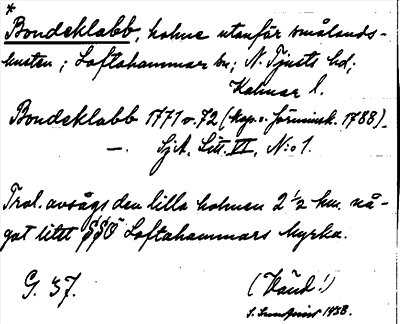 *
Bondeklabb, holme utanför smålands-
kusten; Loftahammar sn; N. Tjusts hd;
Kalmar l.
Bondeklabb 1771 o. 72 (kop. o. förminsk. 1788)
—. Sjk. Litt. VI, N:o 1.
Trol. avsågs den lilla holmen 2 ½ km. nå-
got litet SSO Loftahammars kyrka.
G. 37. (Känd!)
1938.